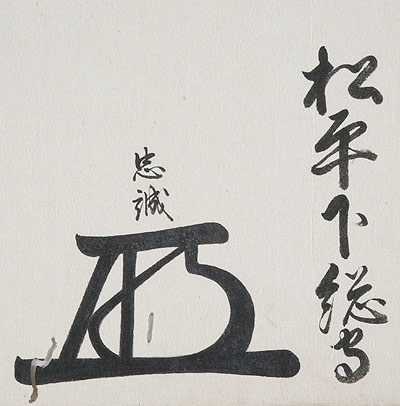 松平下総守
忠誠